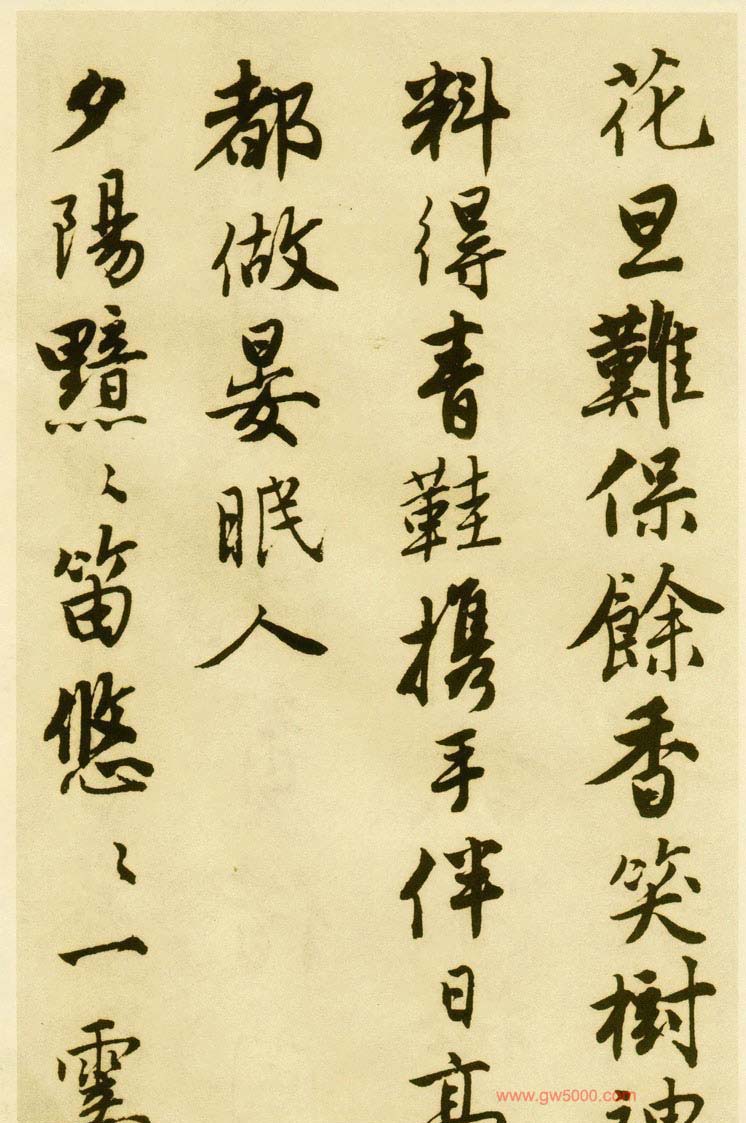 花旦難保餘香笑樹神
料得青鞋攜手伴日高
都做晏眠人
夕陽黯々笛悠々一霎
www.gw5000.com